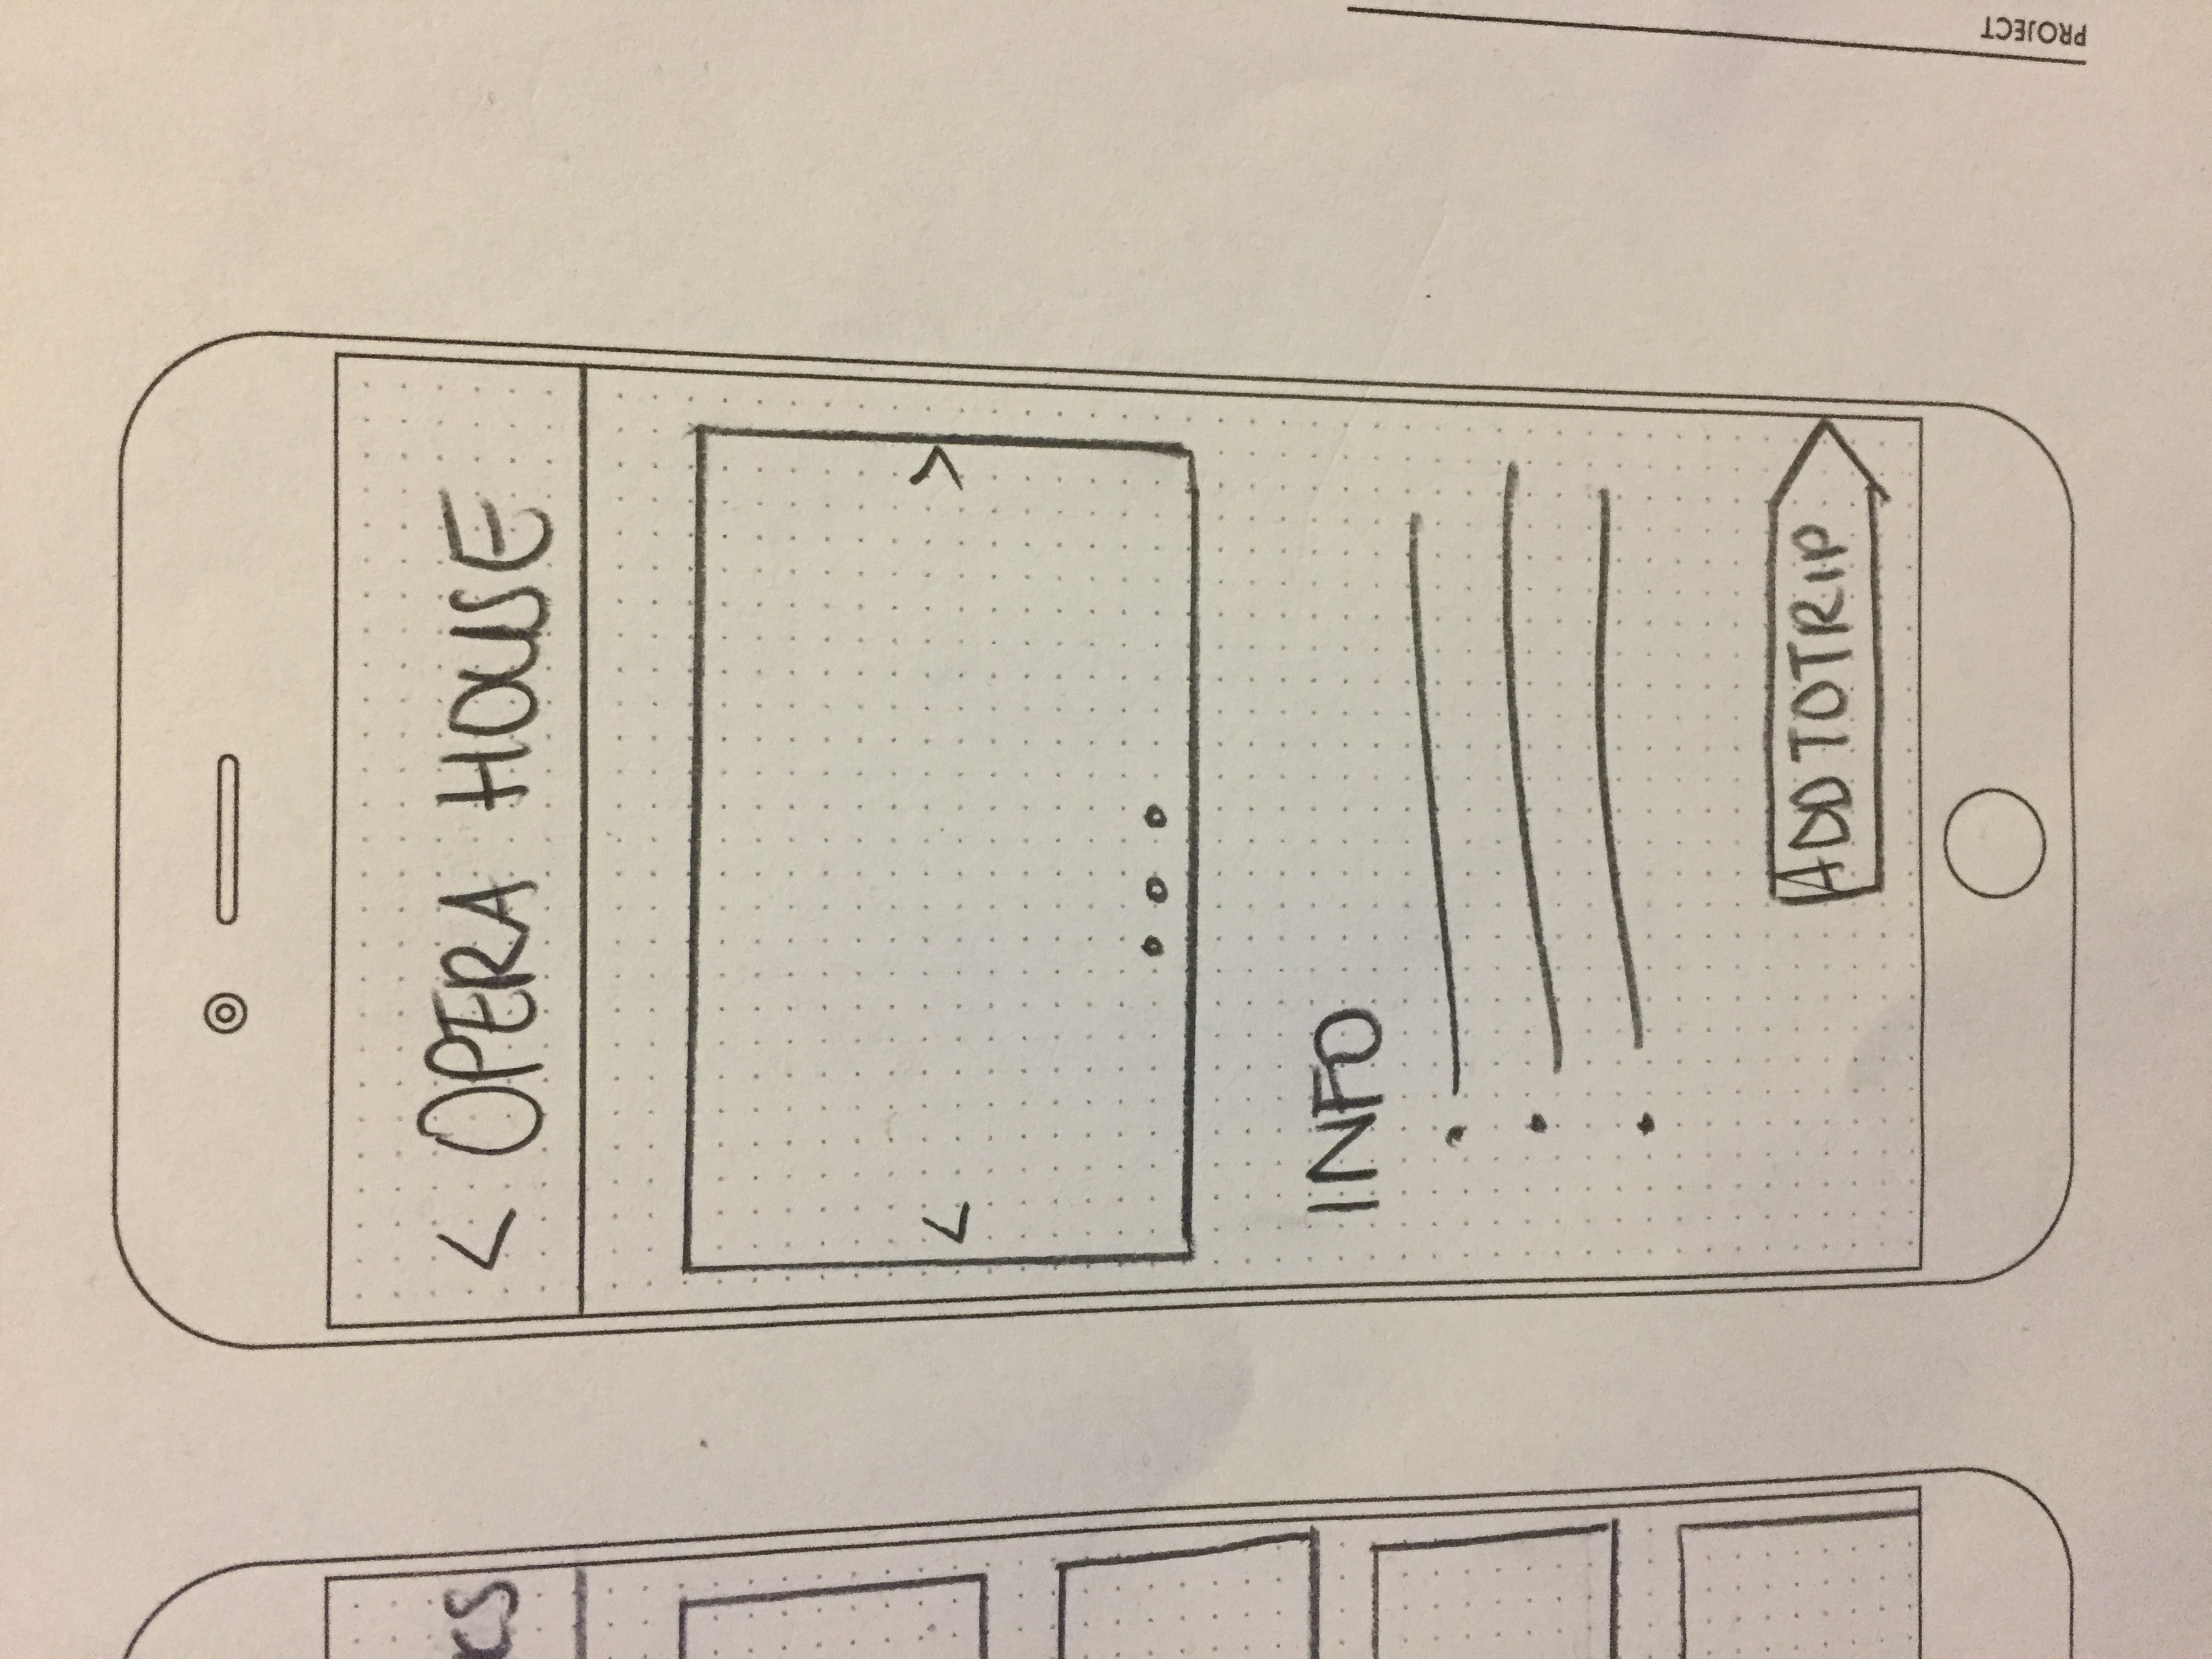 < OPERA HOUSE
< >
INFO
ADD TO TRIP
PROJECT